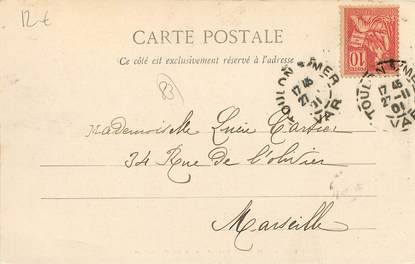 12 €
CARTE POSTALE
Ce côté est exclusivement réservé à l'adresse
10
TOULON S MER
17 45
27
VAR
TOULON S MER
17 45
27
VAR
83
Mademoiselle Lucie Cartier
34 Rue de l'olivier
Marseille